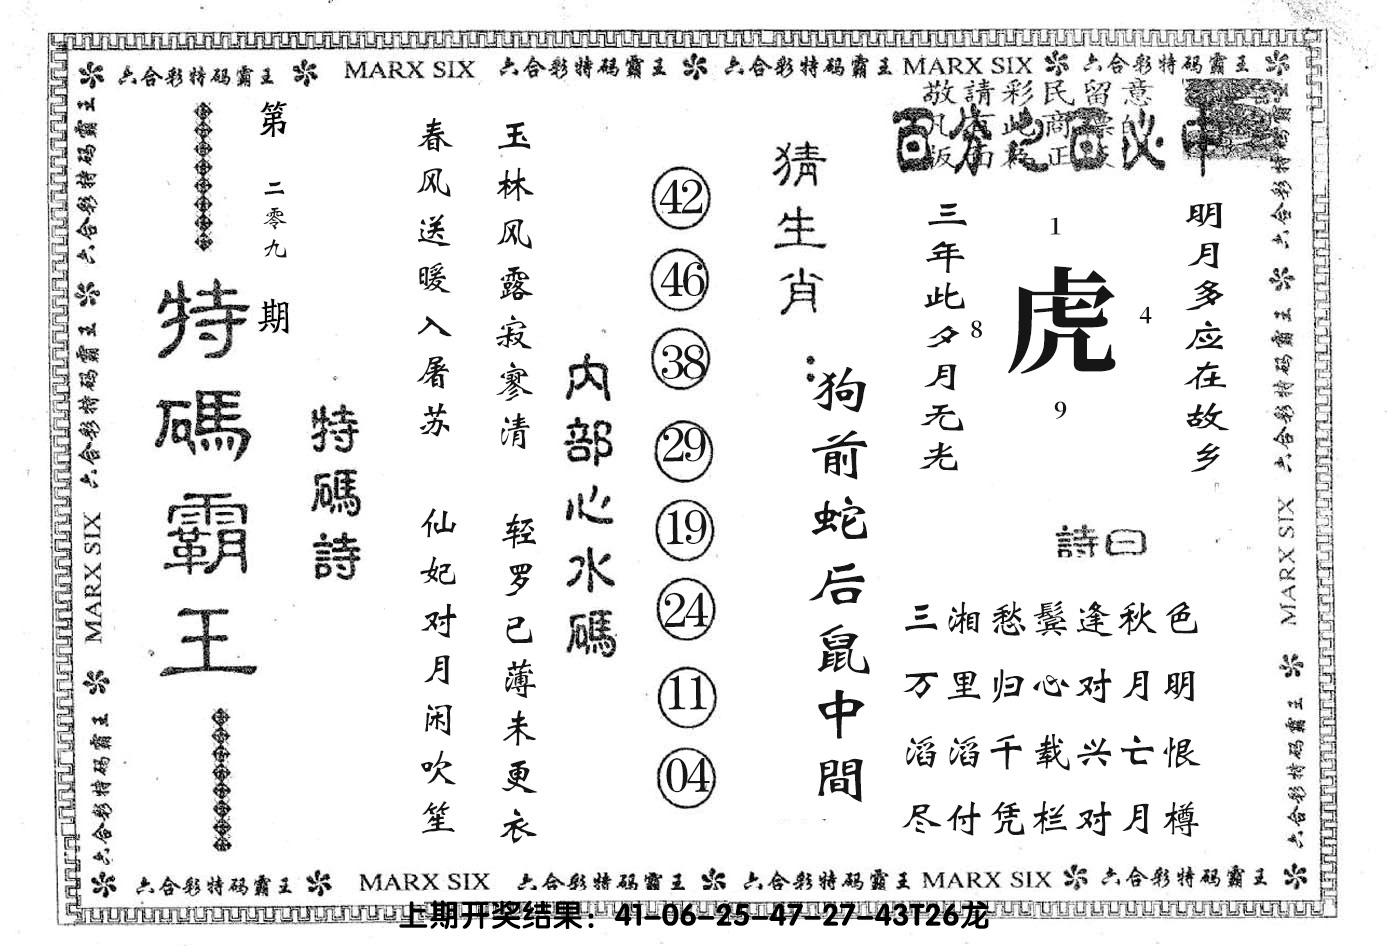 六合彩特码霸王 MARX SIX 六合彩特码霸王 六合彩特码霸王 MARX SIX 六合彩特码霸王
敬請彩民留意
百分之百必中
明月多应在故乡
三年此夕月无光
1
虎
8
4
9
詩曰
三湘愁鬓逢秋色
万里归心对月明
滔滔千载兴亡恨
尽付凭栏对月樽
猜生肖：
狗前蛇后鼠中間
42
46
38
29
19
24
11
04
内部心水碼
玉林风露寂寥清 轻罗已薄未更衣
春风送暖入屠苏 仙妃对月闲吹笙
特碼詩
第二零九期
特碼霸王
六合彩特码霸王 六合彩特码霸王 MARX SIX 六合彩特码霸王
六合彩特码霸王 六合彩特码霸王 MARX SIX 六合彩特码霸王
六合彩特码霸王 MARX SIX 六合彩特码霸王 六合彩特码霸王 MARX SIX 六合彩特码霸王
上期开奖结果：41-06-25-47-27-43T26龙